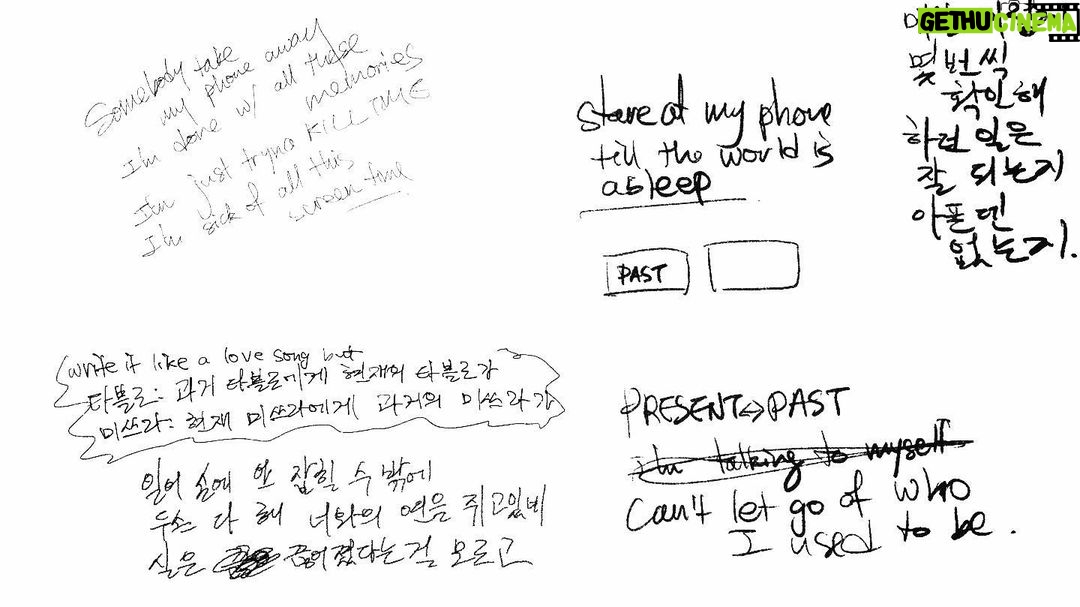 Somebody take
my phone away
I'm done w/ all these
memories
I'm just tryna KILL TIME
I'm sick of all this
screen time
stare at my phone
till the world is
asleep
PAST
GETHU CINEMA
몇 번씩
확인해
하던 일은
잘 되는지
아픈 덴
없는지.
write it like a love song but
타블로: 과거 타블로에게 현재의 타블로가
미쓰라: 현재 미쓰라에게 과거의 미쓰라가
수 밖에
다 해 너와의 연을 쥐고있네
실은 끊어졌다는걸 모르고
PRESENT↔PAST
I'm talking to myself
Can't let go of who
I used to be.